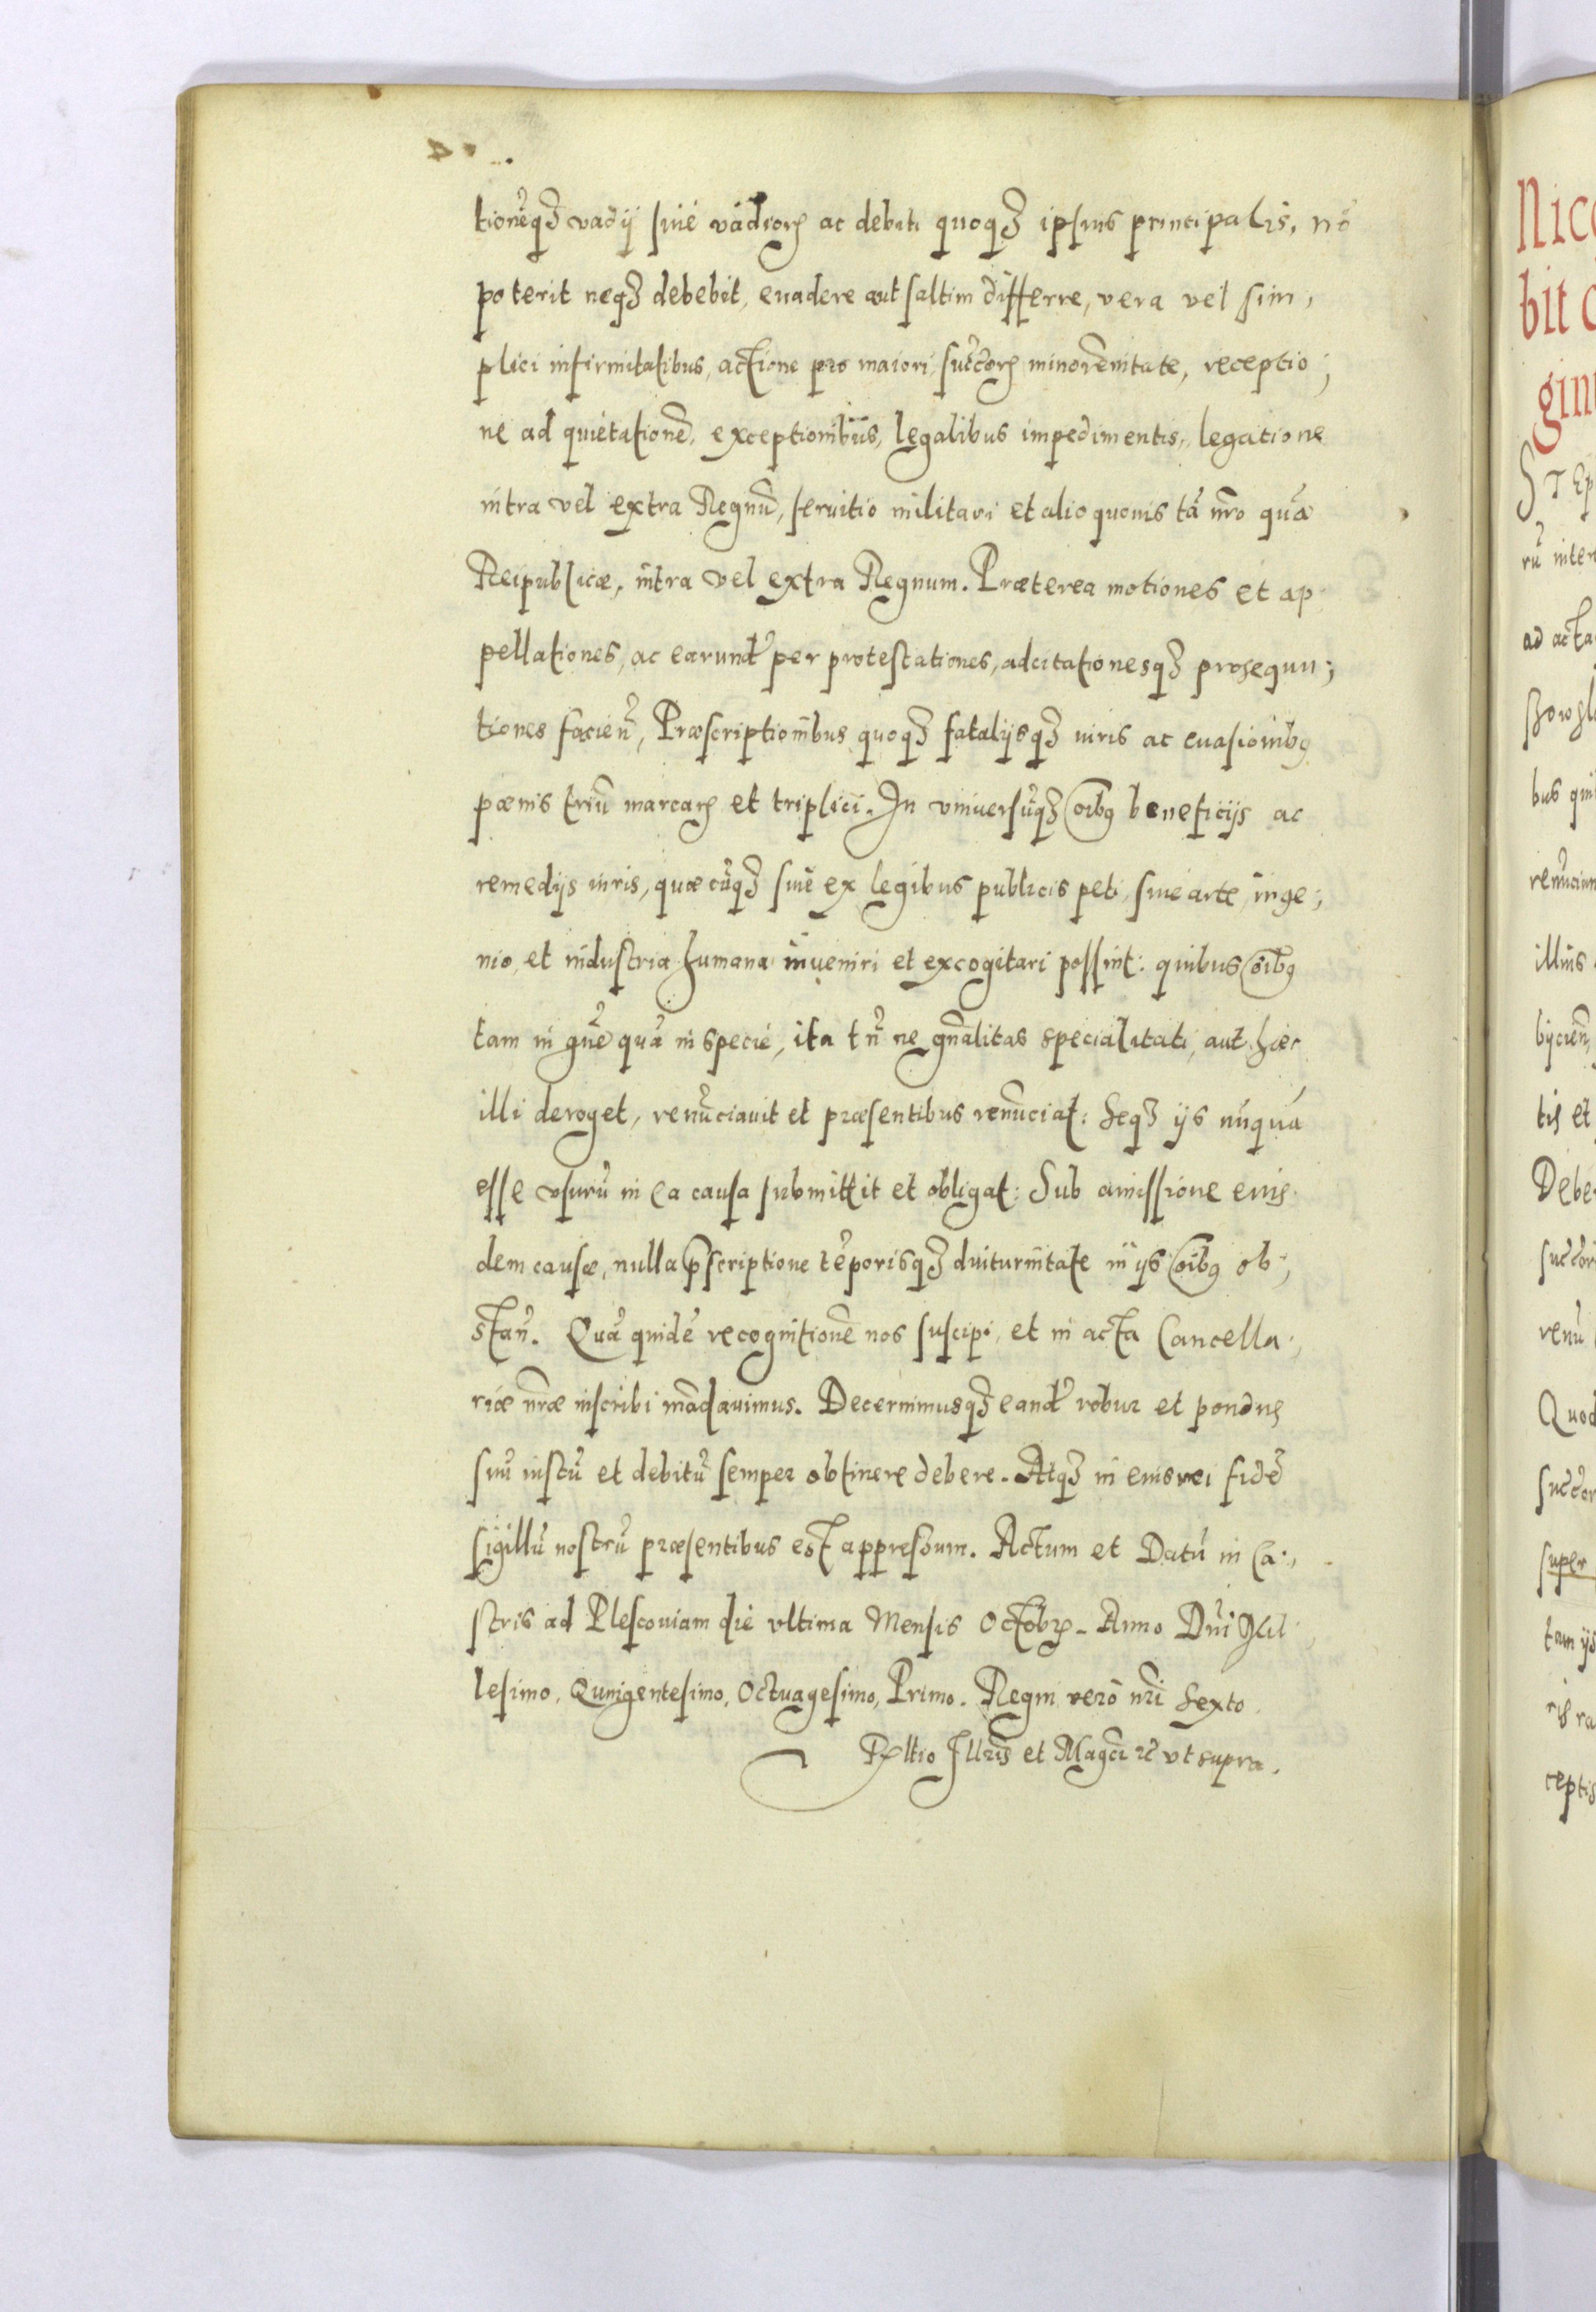 tionēqꝫ vadij siue vadiorꝝ ac debiti quoqꝫ ipsius principalis, nō
poterit neqꝫ debebit, euadere aut saltim differre, vera vel sim,
plici infirmitatibus, actione pro maiori, succorꝝ minorēnitate, receptio;
ne ad quietationē, exceptionibus, legalibus impedimentis, legatione
intra vel extra Regnū, seruitio militari et alio quouis tā nr̄o quā
Reipublicæ, intra vel extra Regnum. Præterea motiones et ap
pellationes, ac earund̄ per protestationes, adcitationesqꝫ prosequu;
tiones facien̄, Præscriptionibus quoqꝫ fatalijsqꝫ iuris ac euasionibꝯ
pœnis triū marcarꝝ et triplici. In vniuersūqꝫ oībꝯ beneficijs ac
remedijs iuris, quæcūqꝫ siue ex legibus publicis peti, siue arte, inge;
nio, et industria humana inueniri et excogitari possint: quibus oībꝯ
tam in gn̄e quā in specie, ita tn̄ ne gn̄alitas specialitati, aut hæc
illi deroget, renūciauit et præsentibus renūciat: Seqꝫ ijs nūquā
esse vsurū in ea causa submittit et obligat: Sub amissione eius
dem causæ, nulla p̄scriptione tēporisqꝫ diuturnitate in ijs oībꝯ ob;
stan̄. Quā quidē recognitionē nos suscipi, et in acta Cancella;
riæ nr̄æ inscribi mādauimus. Decernimusqꝫ eand̄ robur et pondus
suū iustū et debitū semper obtinere debere. Atqꝫ in eius rei fidē
sigillū nostrū præsentibus est appressum. Actum et Datū in Ca;
stris ad Plescouiam die vltima Mensis Octobrꝭ. Anno Dn̄i Mil
lesimo, Quingentesimo, Octuagesimo, Primo. Regni vero nr̄i Sexto
Rltio Illr̄is et Magci ꝛc̄ vt supra.
Nico
bit
gin
rū inter
ad acta
bus qui
renūcian
illius
bijcien̄
tis et
Debe
succor
renū
Quod
succor
super
tam ijs
ris ra
ceptis